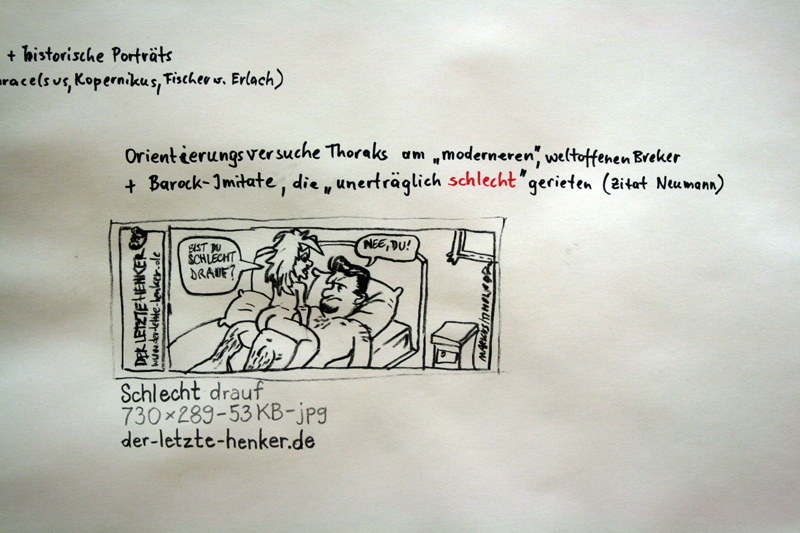 + historische Porträts
Kopernikus, Fischer v. Erlach)
Orientierungsversuche Thoraks am „moderneren", weltoffenen Breker
+ Barock-Imitate, die „unerträglich schlecht" gerieten (Zitat Neumann)
DER LETZTE HENKER
www.der-letzte-henker.de
BIST DU
SCHLECHT
DRAUF?
NEE, DU!
Schlecht drauf
730×289-53KB-jpg
der-letzte-henker.de